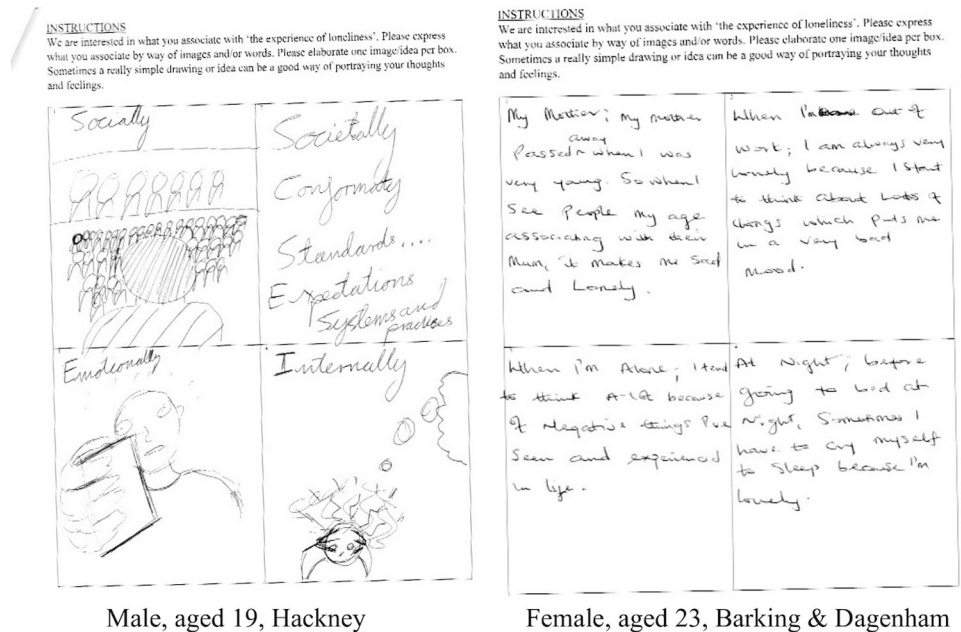 INSTRUCTIONS
We are interested in what you associate with 'the experience of loneliness'. Please express
what you associate by way of images and/or words. Please elaborate one image/idea per box.
Sometimes a really simple drawing or idea can be a good way of portraying your thoughts
and feelings.
Socially
Societally
Conformity
Standards....
Expectations
Systems and
practices
Emotionally
Internally
Male, aged 19, Hackney
INSTRUCTIONS
We are interested in what you associate with 'the experience of loneliness'. Please express
what you associate by way of images and/or words. Please elaborate one image/idea per box.
Sometimes a really simple drawing or idea can be a good way of portraying your thoughts
and feelings.
My Mother; My mother
away
Passed when I was
very young. So when I
See People my age
associating with their
Mum, it makes me Sad
and Lonely.
When I'm out of
work; I am always very
lonely because I start
to think about Lots of
things which puts me
in a very bad
mood.
When I'm Alone; I tend
to think A-lot because
of Negative things I've
Seen and experienced
in life.
At Night; before
going to bed at
Night, Sometimes I
have to cry myself
to sleep because I'm
lonely.
Female, aged 23, Barking & Dagenham